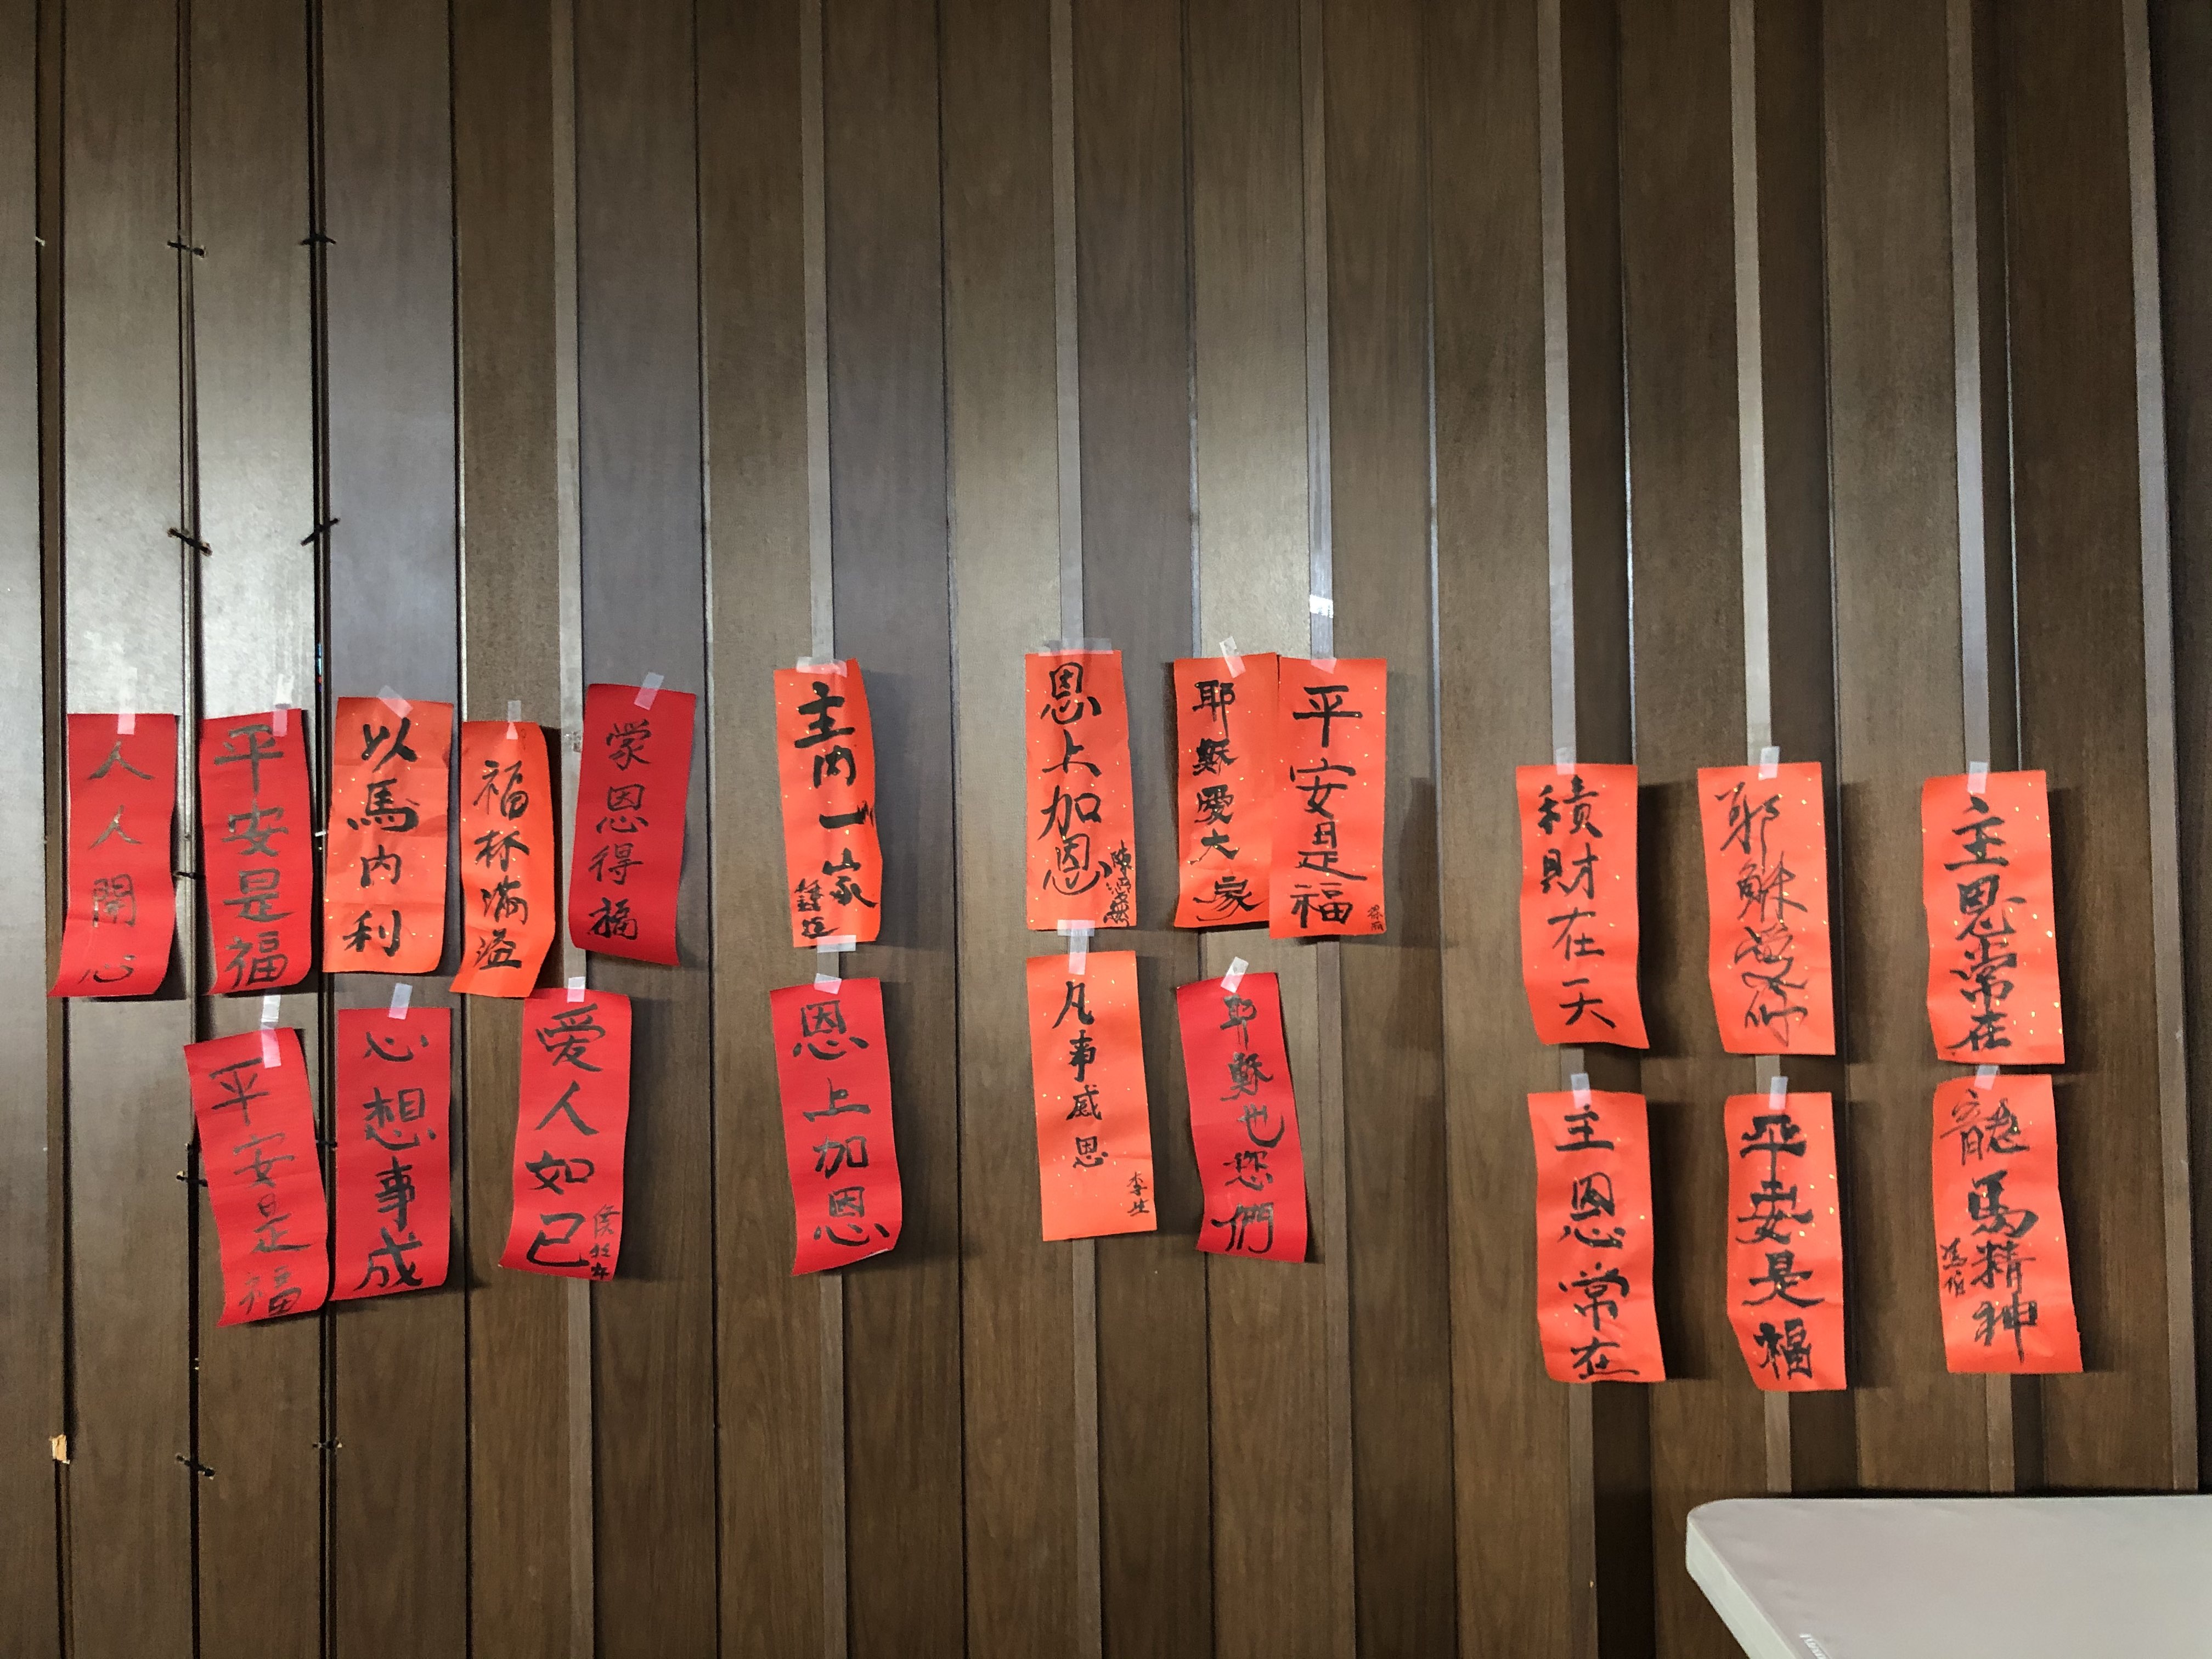 人人開心
平安是福
以馬內利
福杯滿溢
蒙恩得福
主內一家
恩上加恩
耶穌愛大家
平安是福
積財在天
耶穌愛你
主恩常在
平安是福
心想事成
爱人如己
恩上加恩
凡事感恩
李生
耶穌也您們
主恩常在
平安是福
龍馬精神